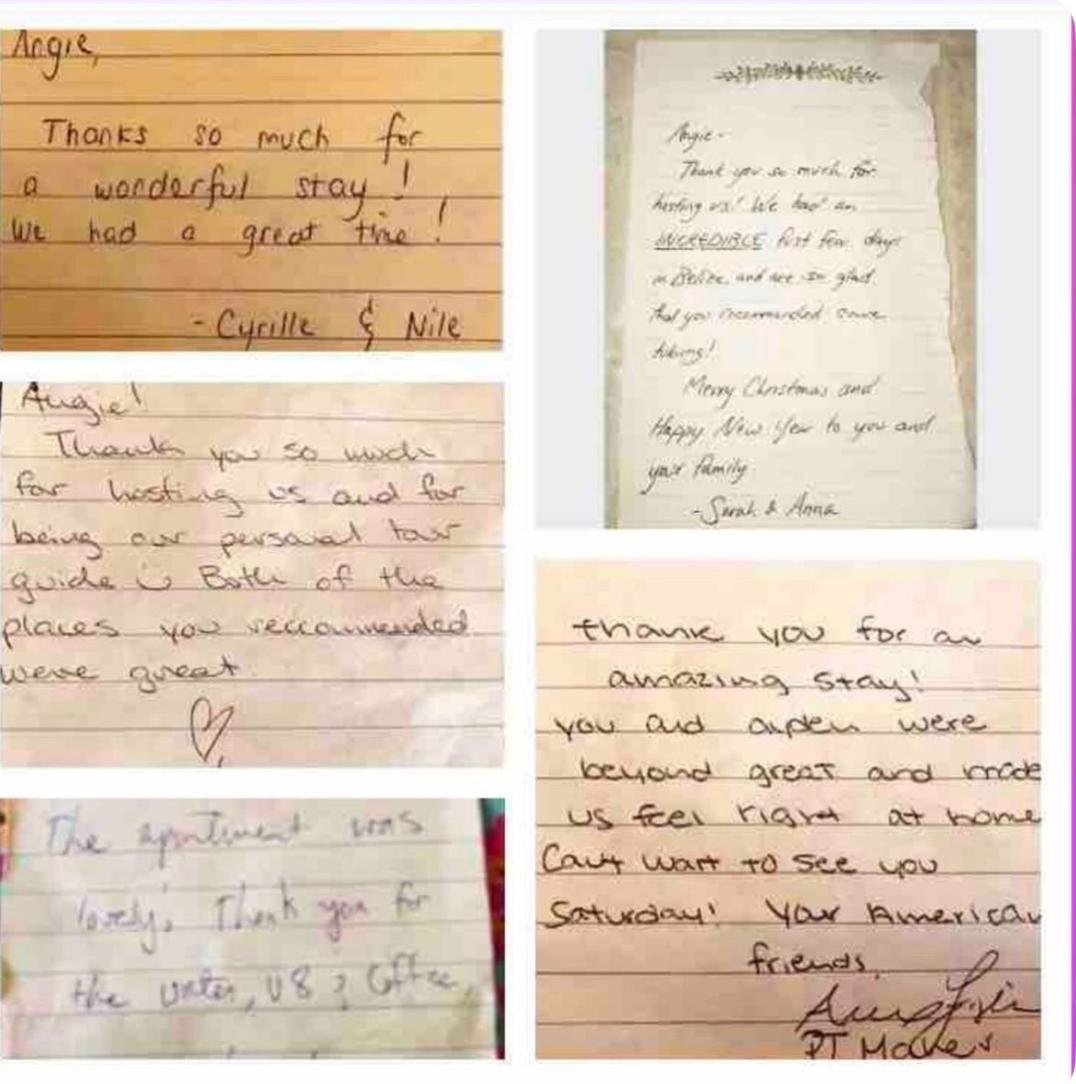 Angie,
Thanks so much for
a wonderful stay!
We had a great time!
- Cyrille & Nile
Angie!
Thank you so much
for hosting us and for
being our personal tour
guide Both of the
places you reccommended
were great.
The apartment was
lovely. Thank you for
the water, V8 & Coffee,
Angie-
Thank you so much for
hosting us! We had an
INCREDIBLE first few days
in Belize and are so glad
that you recommended cave
tubing!
Merry Christmas and
Happy New Year to you and
your family
-Sarah & Anna
thank you for an
amazing stay!
you and were
beyond great and made
us feel right at home
Can't wait to see you
Saturday! Your American
friends,
PT